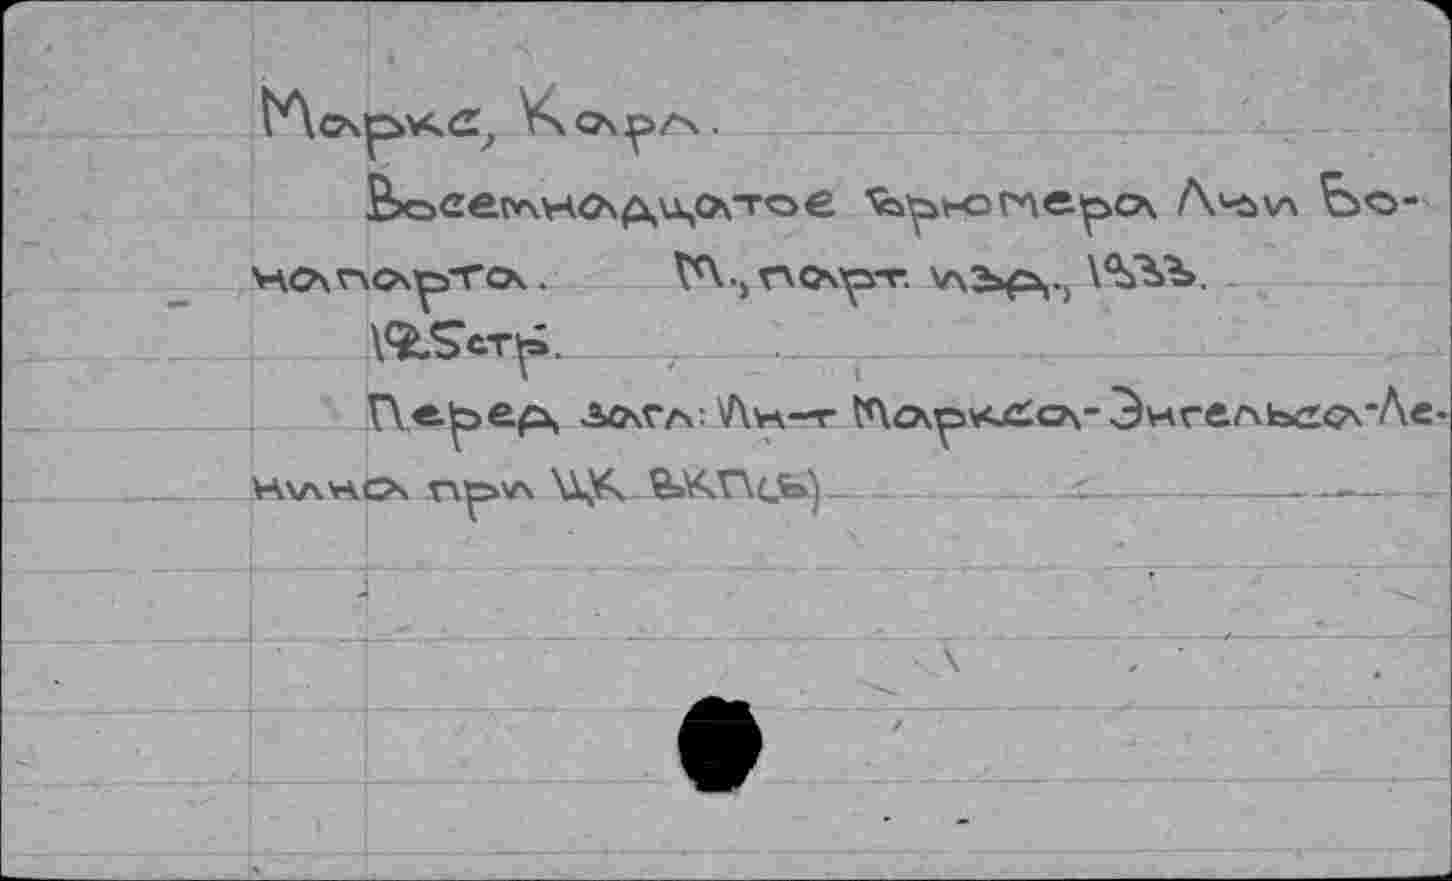 Маркс, Карл.
Восемнадцатое брюмера Луи Бо-
напарта. М., парт. изд., 1933.
192 стр.
Перед загл: Ин-т Маркса-Энгельса-Ле-
нина при ЦК ВКП(б)